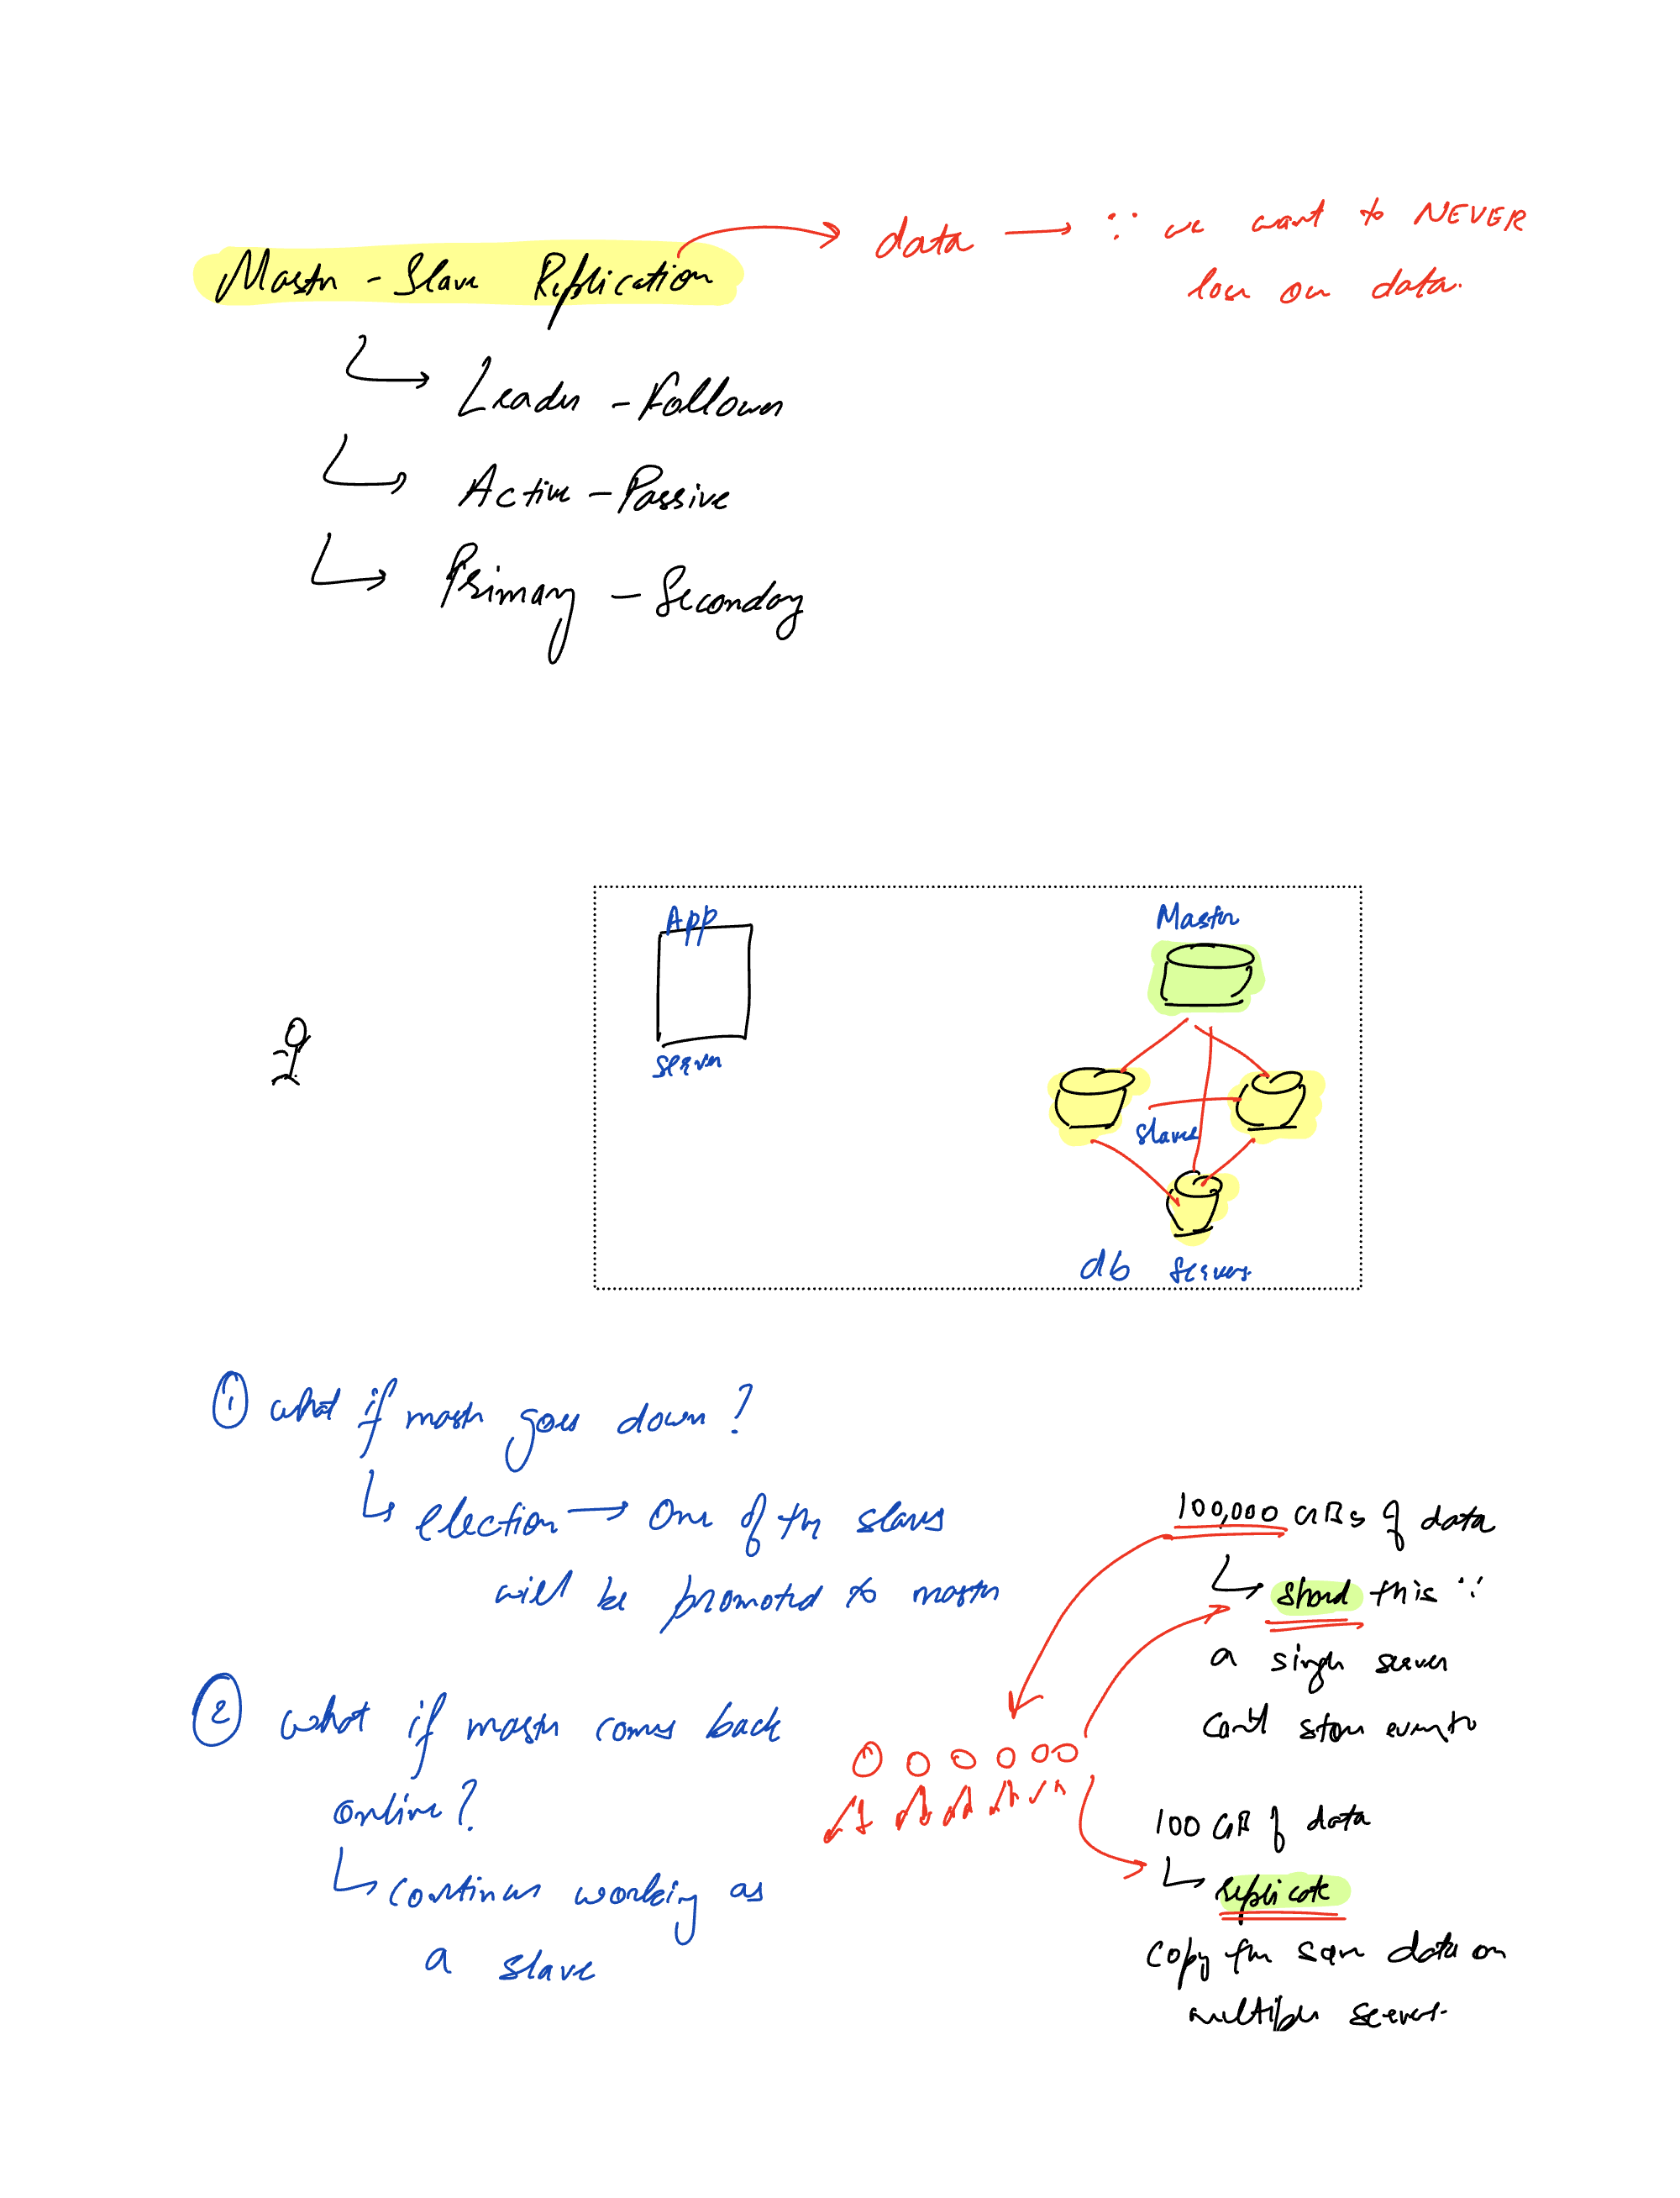 Master - Slave Replication → data → ∵ we want to NEVER
lose our data.
↳ Leader - Follower
↳ Active - Passive
↳ Primary - Secondary
App
Server
Master
Slaves
db servers
① what if master goes down?
↳ election → One of the slaves
will be promoted to master
② what if master comes back
online?
↳ continues working as
a slave
100,000 GBs of data
↳ shard this ∵
a single server
can't store everyth
100 GB of data
↳ replicate
copy the same data on
multiple servers.